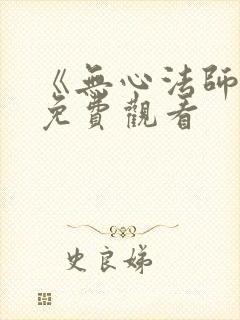 《無心法師
免費觀看
史良娣